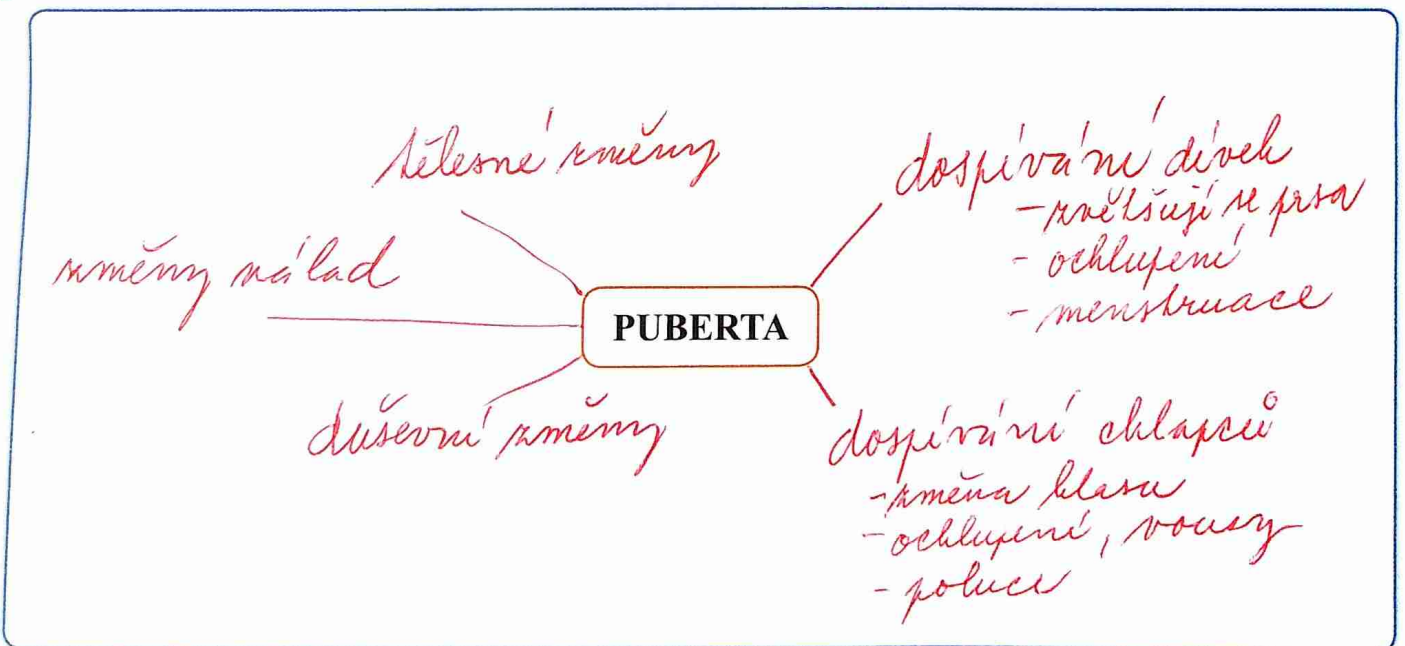 tělesné změny
změny nálad
PUBERTA
duševní změny
dospívání dívek
- zvětšují se prsa
- ochlupení
- menstruace
dospívání chlapců
- změna hlasu
- ochlupení, vousy
- poluce